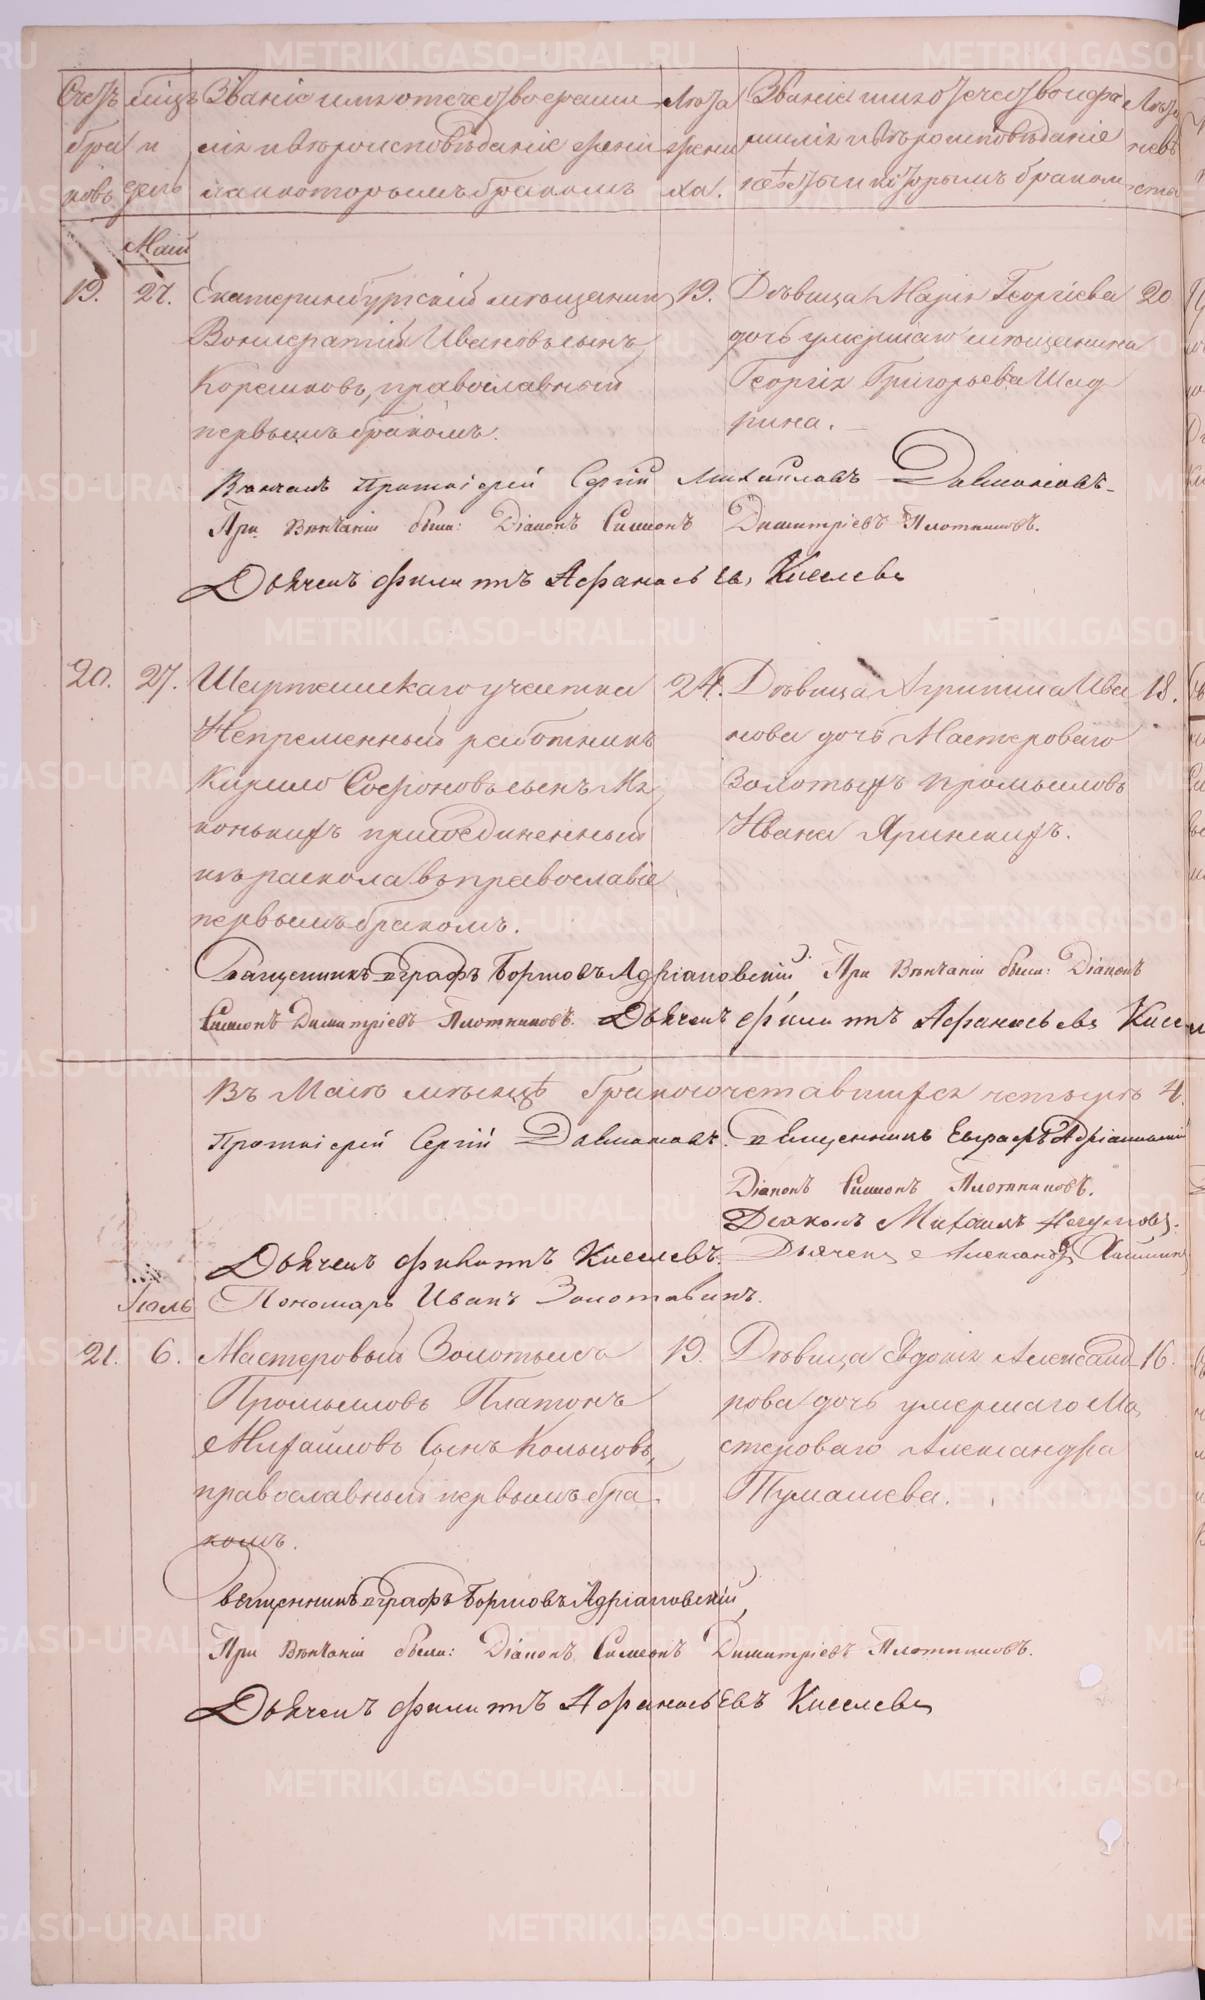 Счетъ браковъ
мцъ и день
Званіе имя отечество фамилія и вѣроисповѣданіе жениха и которымъ бракомъ
Лѣта жениха.
Званіе имя отечество фамилія и вѣроисповѣданіе невѣсты и которымъ бракомъ
Лѣта невѣста
Маій
19. 27. Екатеринбургскій мѣщанинъ 19. Дѣвица Марія Георгіева 20
Ивановъ сынъ дочь умершаго мѣщанина
православный Георгія Григорьева Шад
первымъ бракомъ. рина.
Вѣнчалъ Протоіерей Сергій Михайловъ
При Вѣнчаніи были: Діаконъ Симеонъ Димитріевъ Плотниковъ.
Дьячекъ Филиппъ Афанасьевъ Киселевъ
20. 27. Шарташскаго участка 24. Дѣвица Агрипина Ива 18.
Непременный работникъ нова дочь Мастероваго
Кирило Софоновъ сынъ Золотыхъ промысловъ
присоединенный Ивана
изъ раскола въ православіе
первымъ бракомъ.
Священникъ Адріановскій При Вѣнчаніи были: Діаконъ
Симеонъ Димитріевъ Плотниковъ. Дьячекъ Филиппъ Афанасьевъ
Въ Маіѣ мѣсяцѣ бракосочетавшихся четыре 4.
Протоіерей Сергій Священникъ Евграфъ Адріановскій
Діаконъ Симеонъ Плотниковъ.
Діаконъ Михаилъ
Дьячекъ Филиппъ Киселевъ. Дьячекъ Александръ
Іюль Пономарь Иванъ Золотавинъ.
21. 6. Мастеровый Золотыхъ 19. Дѣвица Евдокія Александ 16.
Промысловъ Платонъ рова дочь умершаго Ма
Михайловъ Сынъ Кольцовъ, стероваго Александра
православный первымъ бра Тумашева.
комъ.
Священникъ Адріановскій
При Вѣнчаніи были: Діаконъ Симеонъ Димитріевъ Плотниковъ.
Дьячекъ Филиппъ Афанасьевъ Киселевъ
METRIKI.GASO-URAL.RU